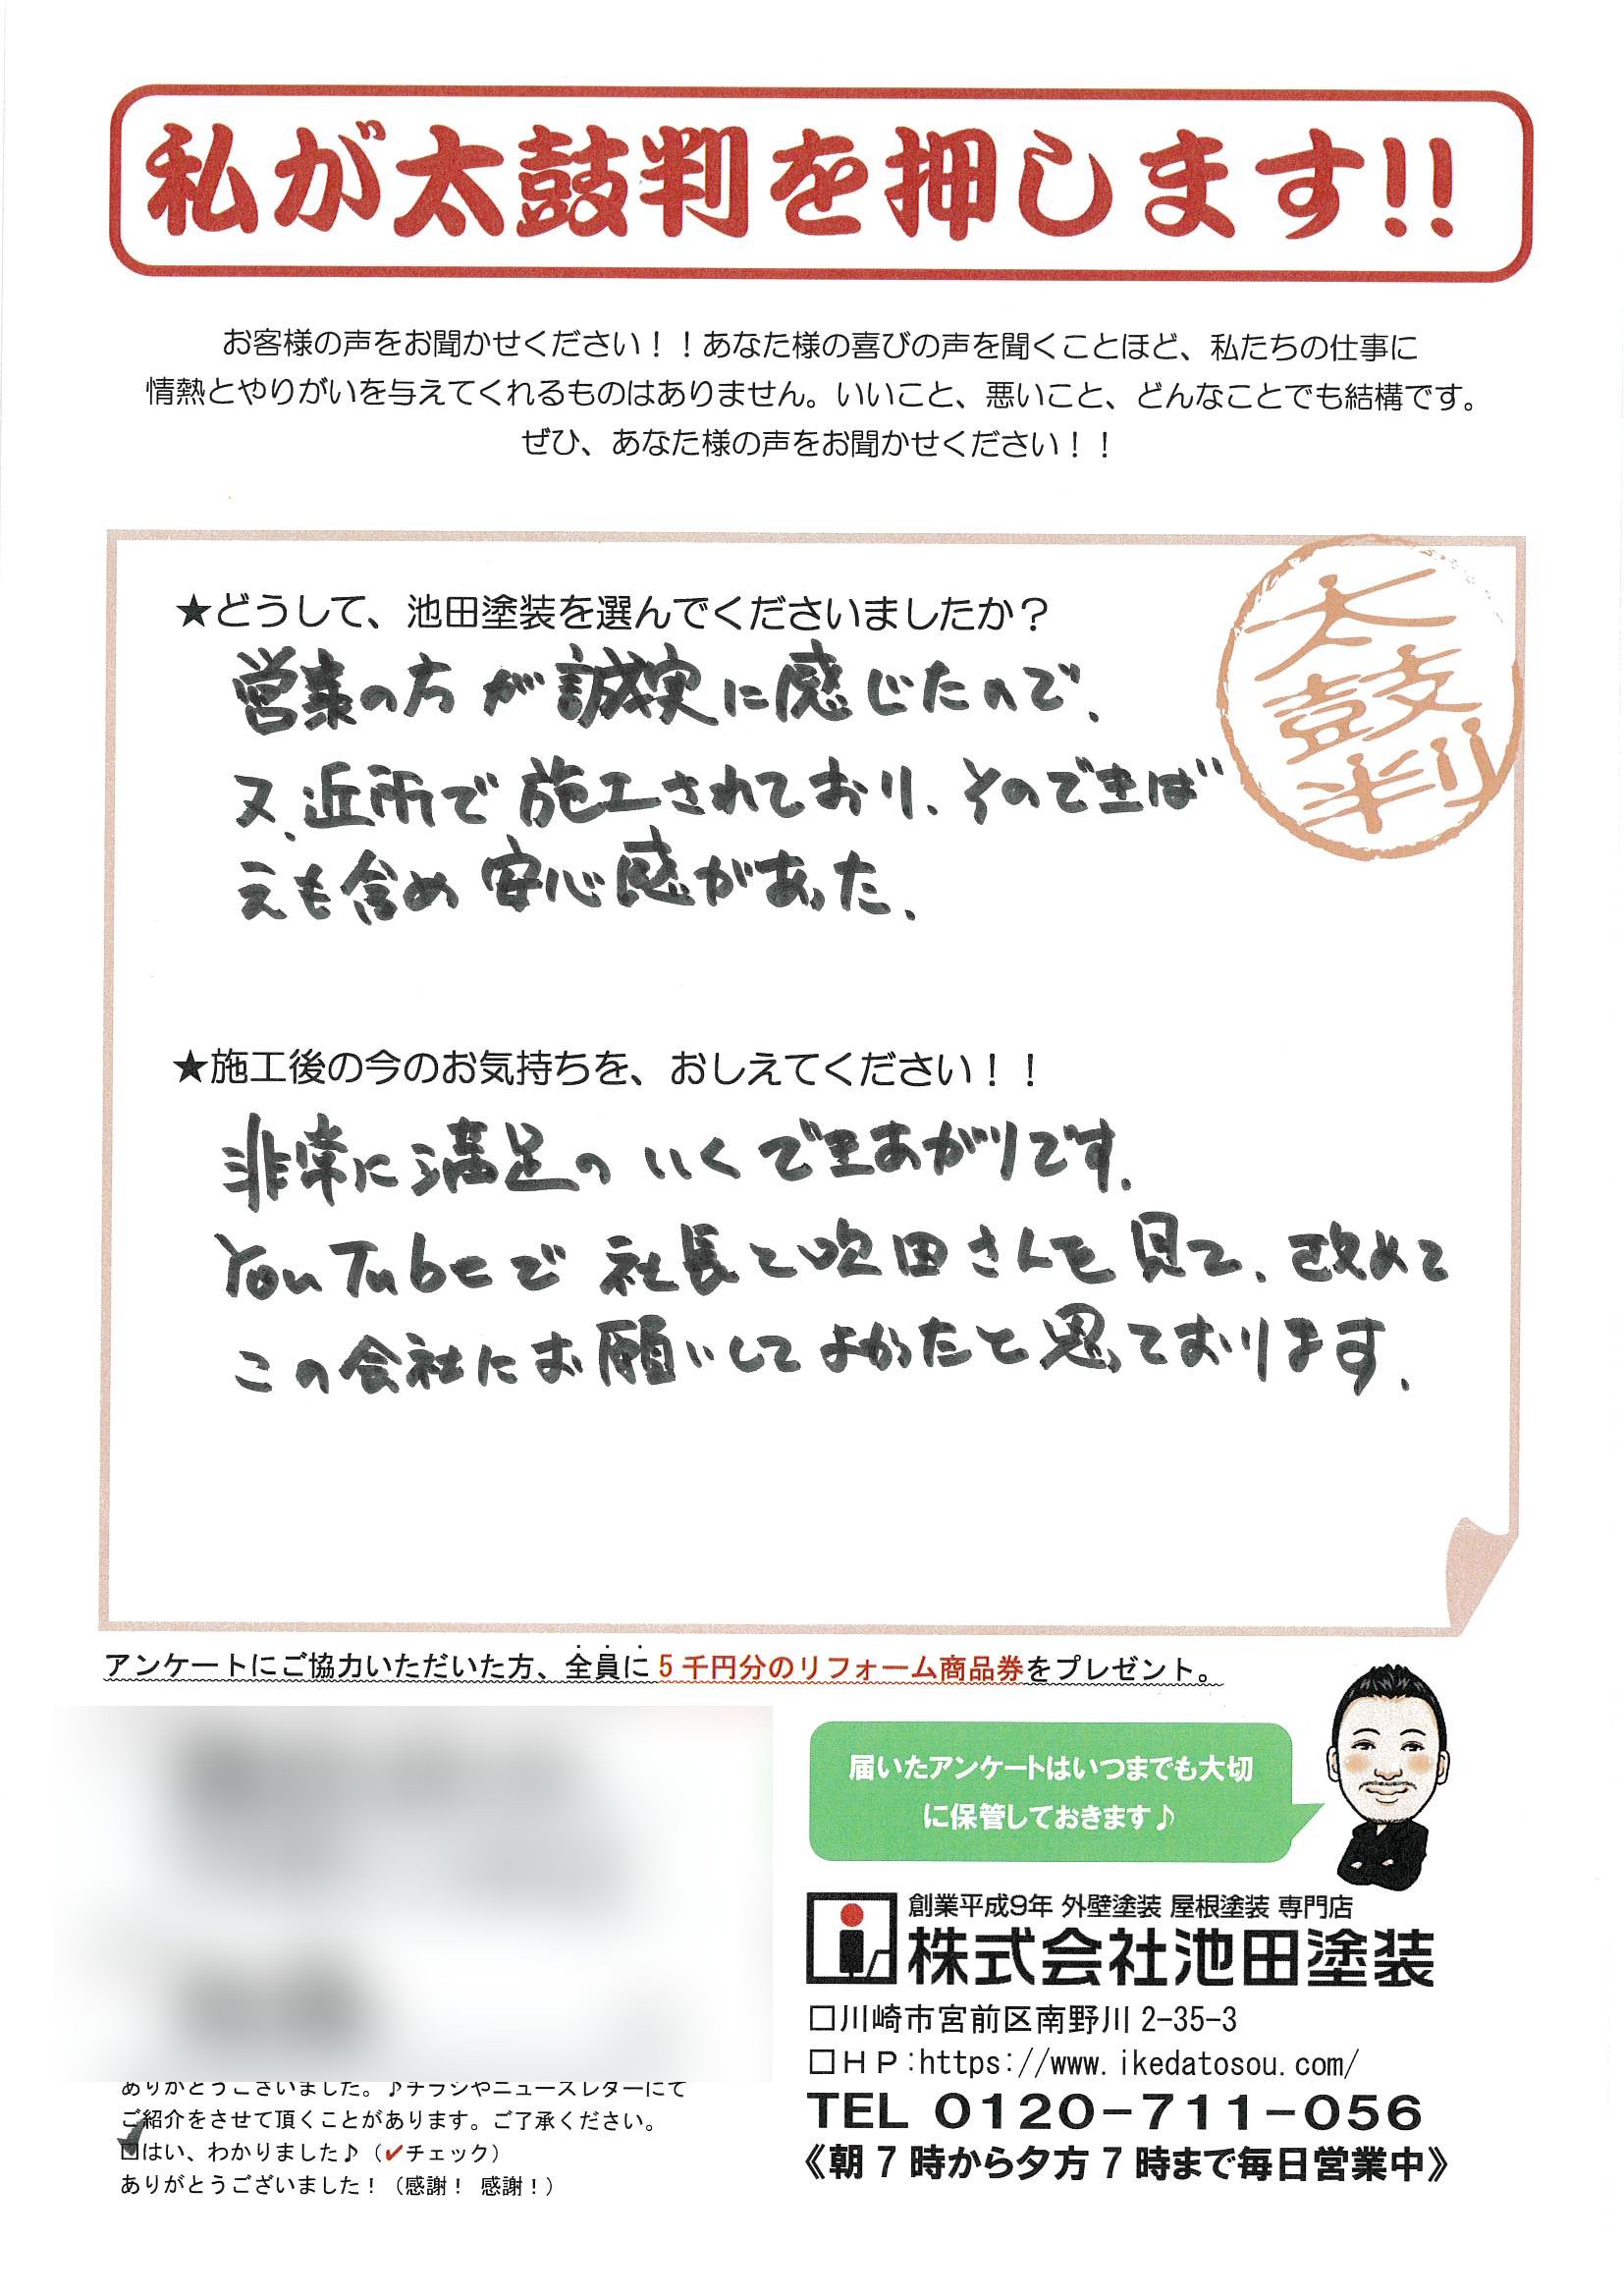 私が太鼓判を押します!!
お客様の声をお聞かせください！！あなた様の喜びの声を聞くことほど、私たちの仕事に
情熱とやりがいを与えてくれるものはありません。いいこと、悪いこと、どんなことでも結構です。
ぜひ、あなた様の声をお聞かせください！！
太
鼓
判
★どうして、池田塗装を選んでくださいましたか？
営業の方が誠実に感じたので、
又、近所で施工されており、そのできば
えも含め安心感があった、
★施工後の今のお気持ちを、おしえてください！！
非常に満足のいくできあがりです、
YouTubeで社長と吹田さんを見て、改めて
この会社にお願いしてよかったと思っております、
アンケートにご協力いただいた方、全員に５千円分のリフォーム商品券をプレゼント。
届いたアンケートはいつまでも大切
に保管しておきます♪
創業平成9年 外壁塗装 屋根塗装 専門店
株式会社池田塗装
□川崎市宮前区南野川 2-35-3
□ＨＰ:https://www.ikedatosou.com/
TEL 0120-711-056
《朝7時から夕方7時まで毎日営業中》
ありがとうございました。♪チラシやニュースレターにて
ご紹介をさせて頂くことがあります。ご了承ください。
☑はい、わかりました♪（✔チェック）
ありがとうございました！（感謝！ 感謝！）